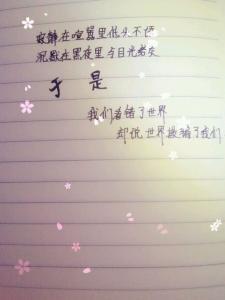 寂静在喧嚣里低头不语
沉默在黑夜里与目光结交
于是
我们看错了世界
却说世界欺骗了我们